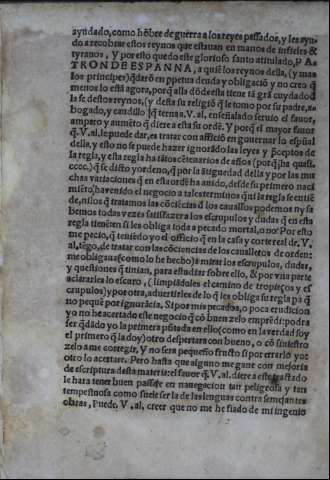 ayudado, como hõbre de guerra a los reyes passados, y les ayu-
do a recobrar estos reynos que estauan en manos de infieles &
tyranos, Y por esto quedo este glorioso santo atitulado, P A-
TRON DE ESPANNA, a quiẽ los reynos della, (y mas
los principes) q̃darõ en ppetua deuda y obligació y no creo q̃
menos lo està agora, porq̃ allà dõde esta tiene tã grã cuydado
la fe destos reynos, (y desta su religiõ q̃ le tomo por su padre, a-
bogado, y caudillo) q̃ terna a. V. al. en señalado seruio el fauor,
amparo y aumẽto q̃ diere a esta su ordẽ. Y porq̃ el mayor fauor
q̃. V. al. le puede dar, es tratar con afficiõ en gouernar lo espũal
della, y esto no se puede hazer ignorãdo las leyes y pceptos de
la regla, y esta regla ha tãtos cẽtenarios de años (por q̃ ha quasi.
cccc.) q̃ se dicto y ordeno, q̃ por la ãtiguedad della y por las mu
chas variaciones q̃ en esta ordẽ ha auido, desde su primero naci
miẽto, ha venido el negocio a tales terminos q̃ si la regla se entiẽ
de, ni los q̃ tratamos las cõciẽcias d'los caualľos podemos ny sa
bemos todas vezes satisfazer a los escrupulos y dudas q̃ en esta
regla tienen: si les obliga toda a pecado mortal, o no: Por esto
me pecio, q̃ teniẽdo yo el officio q̃ en la casa y corte real de. V.
al, tẽgo, de tratar con las cõciencias de los caualleros de orden:
me obligaua (como lo he hecho) a mirar los escrupulos, dudas,
y questiones q̃ tinian, para estudiar sobre ello, & por vna parte
aclararles lo escuro, (limpiãdoles el camino de tropieços y es
crupulos) y por otra, aduertirles de lo q̃ les obliga su regla pa q̃
no pequẽ por ignorãcia, Si por mis pecados, o poca erudicion
yo no he acertado este negocio q̃ cõ buen zelo emprẽdi: podra
ser q̃ dãdo yo la primera pũtada en ello (como en la verdad soy
el primero q̃ la doy) otro despertara con bueno, o cõ siniestro
zelo a me corregir, Y no sera pequeño fructo si por errarlo yo:
otro lo acertare. Pero hasta que alguno me gane con mejoria
de escriptura desta materia: el fauor q̃. V. al. diere a este tractado
le hara tener buen passaje en nauegacion tan peligrosa y tan
tempestuosa como suele ser la de las lenguas contra semejantes
obras, Puede. V. al, creer que no me he fiado de mi ingenio